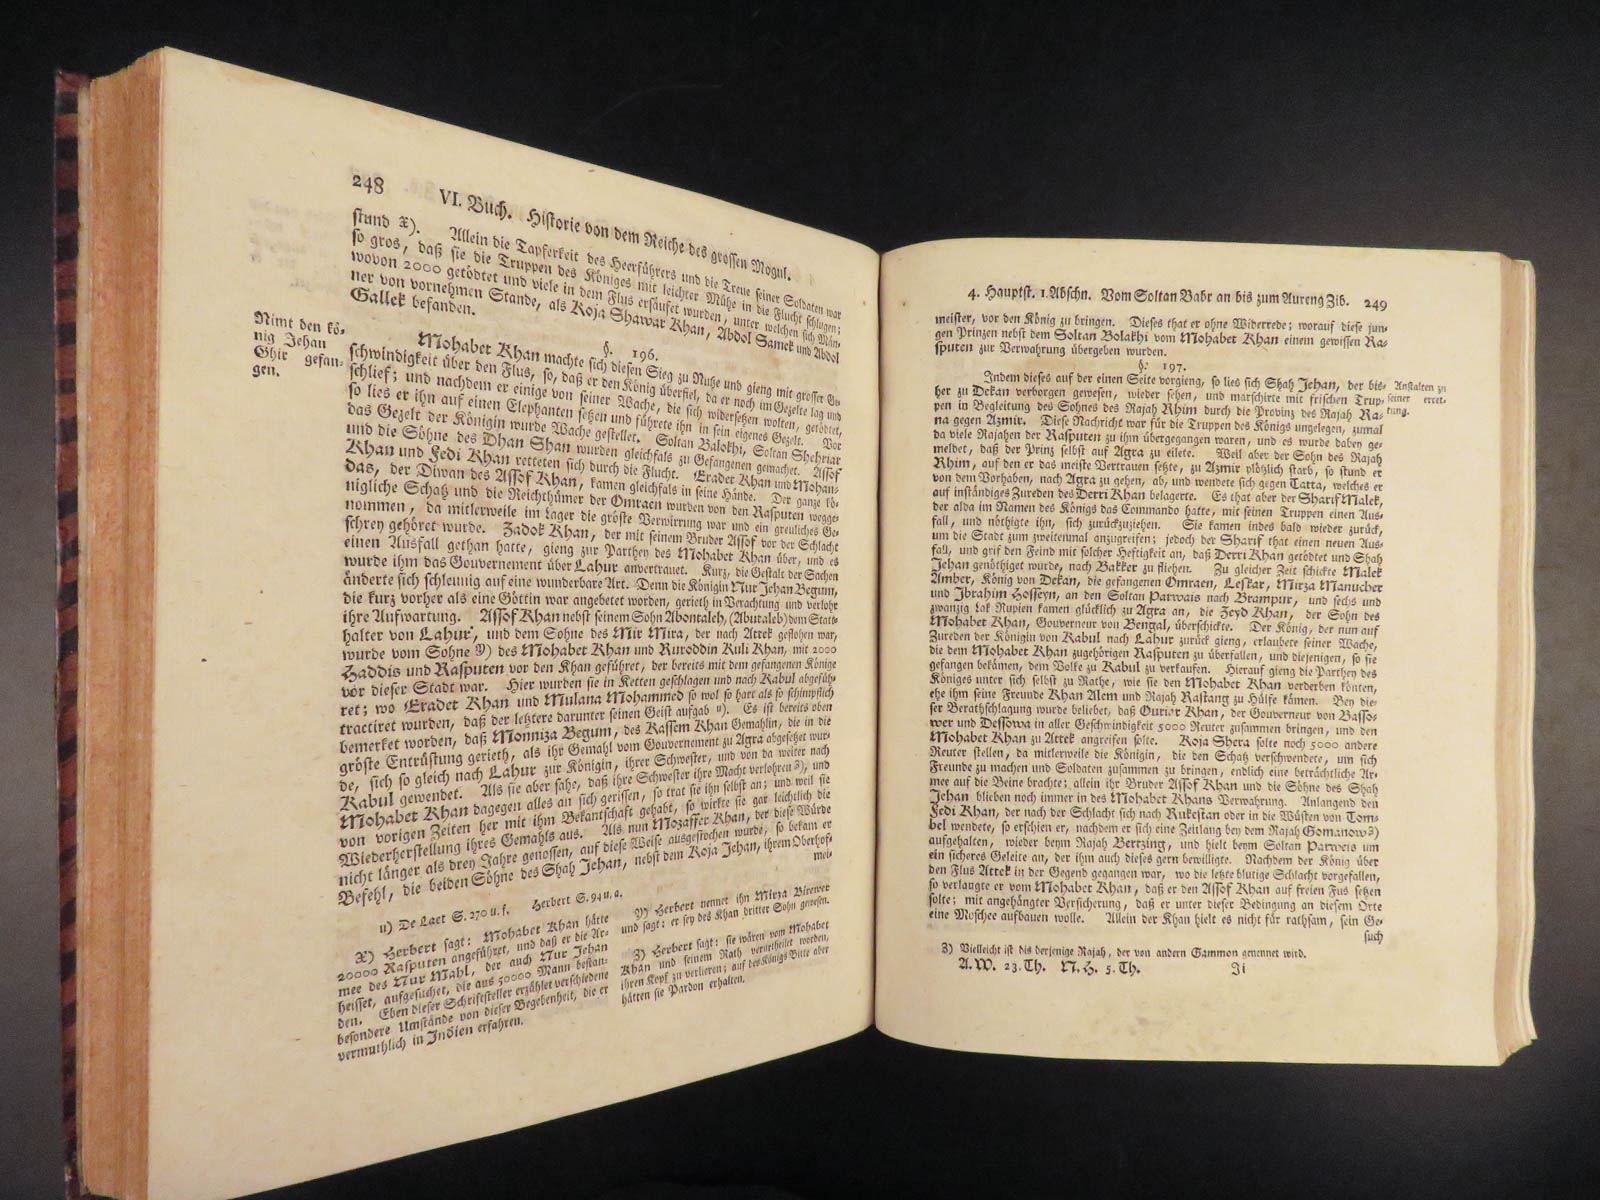 248
VI. Buch. Historie von dem Reiche des grossen Mogul.
stund x). Allein die Tapferkeit des Heerführers und die Treue seiner Soldaten war
so gros, daß sie die Truppen des Königes mit leichter Mühe in die Flucht schlugen;
wovon 2000 getödtet und viele in dem Flus ersäufet wurden, unter welchen sich Män-
ner von vornehmen Stande, als Koja Shawar Khan, Abdol Samek und Abdol
Gallek befanden.
§. 196.
Nimt den kö-
nig Jehan
Ghir gefan-
gen.
Mohabet Khan machte sich diesen Sieg zu Nutze und gieng mit grosser Ge-
schwindigkeit über den Flus, so, daß er den König überfiel, da er noch im Gezelte lag und
schlief; und nachdem er einige von seiner Wache, die sich widersetzen wolten, getödtet,
so lies er ihn auf einen Elephanten setzen und führete ihn in sein eigenes Gezelt. Vor
das Gezelt der Königin wurde Wache gestellet. Soltan Balokhi, Soltan Shehriar
und die Söhne des Dhan Shan wurden gleichfals zu Gefangenen gemachet. Assof
Khan und Jedi Khan retteten sich durch die Flucht. Eradet Khan und Mohan-
das, der Diwan des Assof Khan, kamen gleichfals in seine Hände. Der ganze kö-
nigliche Schatz und die Reichthümer der Omraen wurden von den Rasputen wegge-
nommen, da mitlerweile im Lager die gröste Verwirrung war und ein greuliches Ge-
schrey gehöret wurde. Zadok Khan, der mit seinem Bruder Assof vor der Schlacht
einen Ausfall gethan hatte, gieng zur Parthey des Mohabet Khan über, und es
wurde ihm das Gouvernement über Lahur anvertrauet. Kurz, die Gestalt der Sachen
änderte sich schleunig auf eine wunderbare Art. Denn die Königin Nur Jehan Begum,
die kurz vorher als eine Göttin war angebetet worden, gerieth in Verachtung und verlohr
ihre Aufwartung. Assof Khan nebst seinem Sohn Abontaleh, (Abutaleb) dem Statt-
halter von Lahur, und dem Sohne des Mir Mira, der nach Attek geflohen war,
wurde vom Sohne y) des Mohabet Khan und Ruroddin Kuli Khan, mit 2000
Haddis und Rasputen vor den Khan geführet, der bereits mit dem gefangenen Könige
vor dieser Stadt war. Hier wurden sie in Ketten geschlagen und nach Kabul abgefüh-
ret; wo Eradet Khan und Mulana Mohammed so wol so hart als so schimpflich
tractiret wurden, daß der letztere darunter seinen Geist aufgab u). Es ist bereits oben
bemerket worden, daß Monniza Begum, des Kassem Khan Gemahlin, die in die
gröste Entrüstung gerieth, als ihr Gemahl vom Gouvernement zu Agra abgesetzt wur-
de, sich so gleich nach Lahur zur Königin, ihrer Schwester, und von da weiter nach
Kabul gewendet. Als sie aber sahe, daß ihre Schwester ihre Macht verlohren z), und
Mohabet Khan dagegen alles an sich gerissen, so trat sie ihn selbst an; und weil sie
von vorigen Zeiten her mit ihm Bekantschaft gehabt, so wirkte sie gar leichtlich die
Wiederherstellung ihres Gemahls aus. Als nun Mozaffer Khan, der diese Würde
nicht länger als drey Jahre genossen, auf diese Weise ausgestochen wurde, so bekam er
Befehl, die beiden Söhne des Shah Jehan, nebst dem Koja Jehan, ihrem Oberhof-
mei-
u) De Laet S. 270 u. f. Herbert S. 94 u. a.
x) Herbert sagt: Mohabet Khan hätte
20000 Rasputen angeführet, und daß er die Ar-
mee des Nur Mahl, der auch Nur Jehan
heisset, aufgesuchet, die aus 50000 Mann bestan-
den. Eben dieser Schriftsteller erzählet verschiedene
besondere Umstände von dieser Begebenheit, die er
vermuthlich in Indien erfahren.
y) Herbert nennet ihn Mirza Birewer
und sagt: er sey des Khan dritter Sohn gewesen.
z) Herbert sagt: sie wären vom Mohabet
Khan und seinem Rath verurtheilet worden,
ihren Kopf zu verlieren; auf des Königs Bitte aber
hätten sie Pardon erhalten.
4. Hauptst. 1. Abschn. Vom Soltan Babr an bis zum Aureng Zib. 249
meister, vor den König zu bringen. Dieses that er ohne Widerrede; worauf diese jun-
gen Prinzen nebst dem Soltan Bolakhi vom Mohabet Khan einem gewissen Ra-
sputen zur Verwahrung übergeben wurden.
§. 197.
Anstalten zu
seiner erret-
tung.
Indem dieses auf der einen Seite vorgieng, so lies sich Shah Jehan, der bis-
her zu Dekan verborgen gewesen, wieder sehen, und marschirte mit frischen Trup-
pen in Begleitung des Sohnes des Rajah Rhim durch die Provinz des Rajah Ra-
na gegen Azmir. Diese Nachricht war für die Truppen des Königs ungelegen, zumal
da viele Rajahen der Rasputen zu ihm übergegangen waren, und es wurde dabey ge-
meldet, daß der Prinz selbst auf Agra zu eilete. Weil aber der Sohn des Rajah
Rhim, auf den er das meiste Vertrauen setzte, zu Azmir plötzlich starb, so stund er
von dem Vorhaben, nach Agra zu gehen, ab, und wendete sich gegen Tatta, welches er
auf inständiges Zureden des Derri Khan belagerte. Es that aber der Sharif Malek,
der alda im Namen des Königs das Commando hatte, mit seinen Truppen einen Aus-
fall, und nöthigte ihn, sich zurückzuziehen. Sie kamen indes bald wieder zurück,
um die Stadt zum zweitenmal anzugreifen; jedoch der Sharif that einen neuen Aus-
fall, und grif den Feind mit solcher Heftigkeit an, daß Derri Khan getödtet und Shah
Jehan genöthiget wurde, nach Bakker zu fliehen. Zu gleicher Zeit schickte Malek
Amber, König von Dekan, die gefangenen Omraen, Leskar, Mirza Manucher
und Ibrahim Hosseyn, an den Soltan Parwais nach Brampur, und sechs und
zwanzig Lak Rupien kamen glücklich zu Agra an, die Zeyd Khan, der Sohn des
Mohabet Khan, Gouverneur von Bengal, überschickte. Der König, der nun auf
Zureden der Königin von Kabul nach Lahur zurück gieng, erlaubete seiner Wache,
die dem Mohabet Khan zugehörigen Rasputen zu überfallen, und diejenigen, so sie
gefangen bekämen, dem Volke zu Kabul zu verkaufen. Hierauf gieng die Parthey des
Königes unter sich selbst zu Rathe, wie sie den Mohabet Khan verderben könten,
ehe ihm seine Freunde Khan Alem und Rajah Rastang zu Hülfe kämen. Bey die-
ser Berathschlagung wurde beliebet, daß Ouriar Khan, der Gouverneur von Basso-
wer und Dessowa in aller Geschwindigkeit 5000 Reuter zusammen bringen, und den
Mohabet Khan zu Attek angreifen solte. Koja Shera solte noch 5000 andere
Reuter stellen, da mitlerweile die Königin, die den Schatz verschwendete, um sich
Freunde zu machen und Soldaten zusammen zu bringen, endlich eine beträchtliche Ar-
mee auf die Beine brachte; allein ihr Bruder Assof Khan und die Söhne des Shah
Jehan blieben noch immer in des Mohabet Khans Verwahrung. Anlangend den
Jedi Khan, der nach der Schlacht sich nach Rukestan oder in die Wüsten von Tom-
bel wendete, so erschien er, nachdem er sich eine Zeitlang bey dem Rajah Gomanow 3)
aufgehalten, wieder beym Rajah Berzing, und hielt beym Soltan Parweis um
ein sicheres Geleite an, der ihm auch dieses gern bewilligte. Nachdem der König über
den Flus Attek in der Gegend gegangen war, wo die letzte blutige Schlacht vorgefallen,
so verlangte er vom Mohabet Khan, daß er den Assof Khan auf freien Fus setzen
solte; mit angehängter Versicherung, daß er unter dieser Bedingung an diesem Orte
eine Moschee aufbauen wolle. Allein der Khan hielt es nicht für rathsam, sein Ge-
such
3) Vielleicht ist dis derjenige Rajah, der von andern Gammon genennet wird.
A. W. 23. Th. N. H. 5. Th. Ii